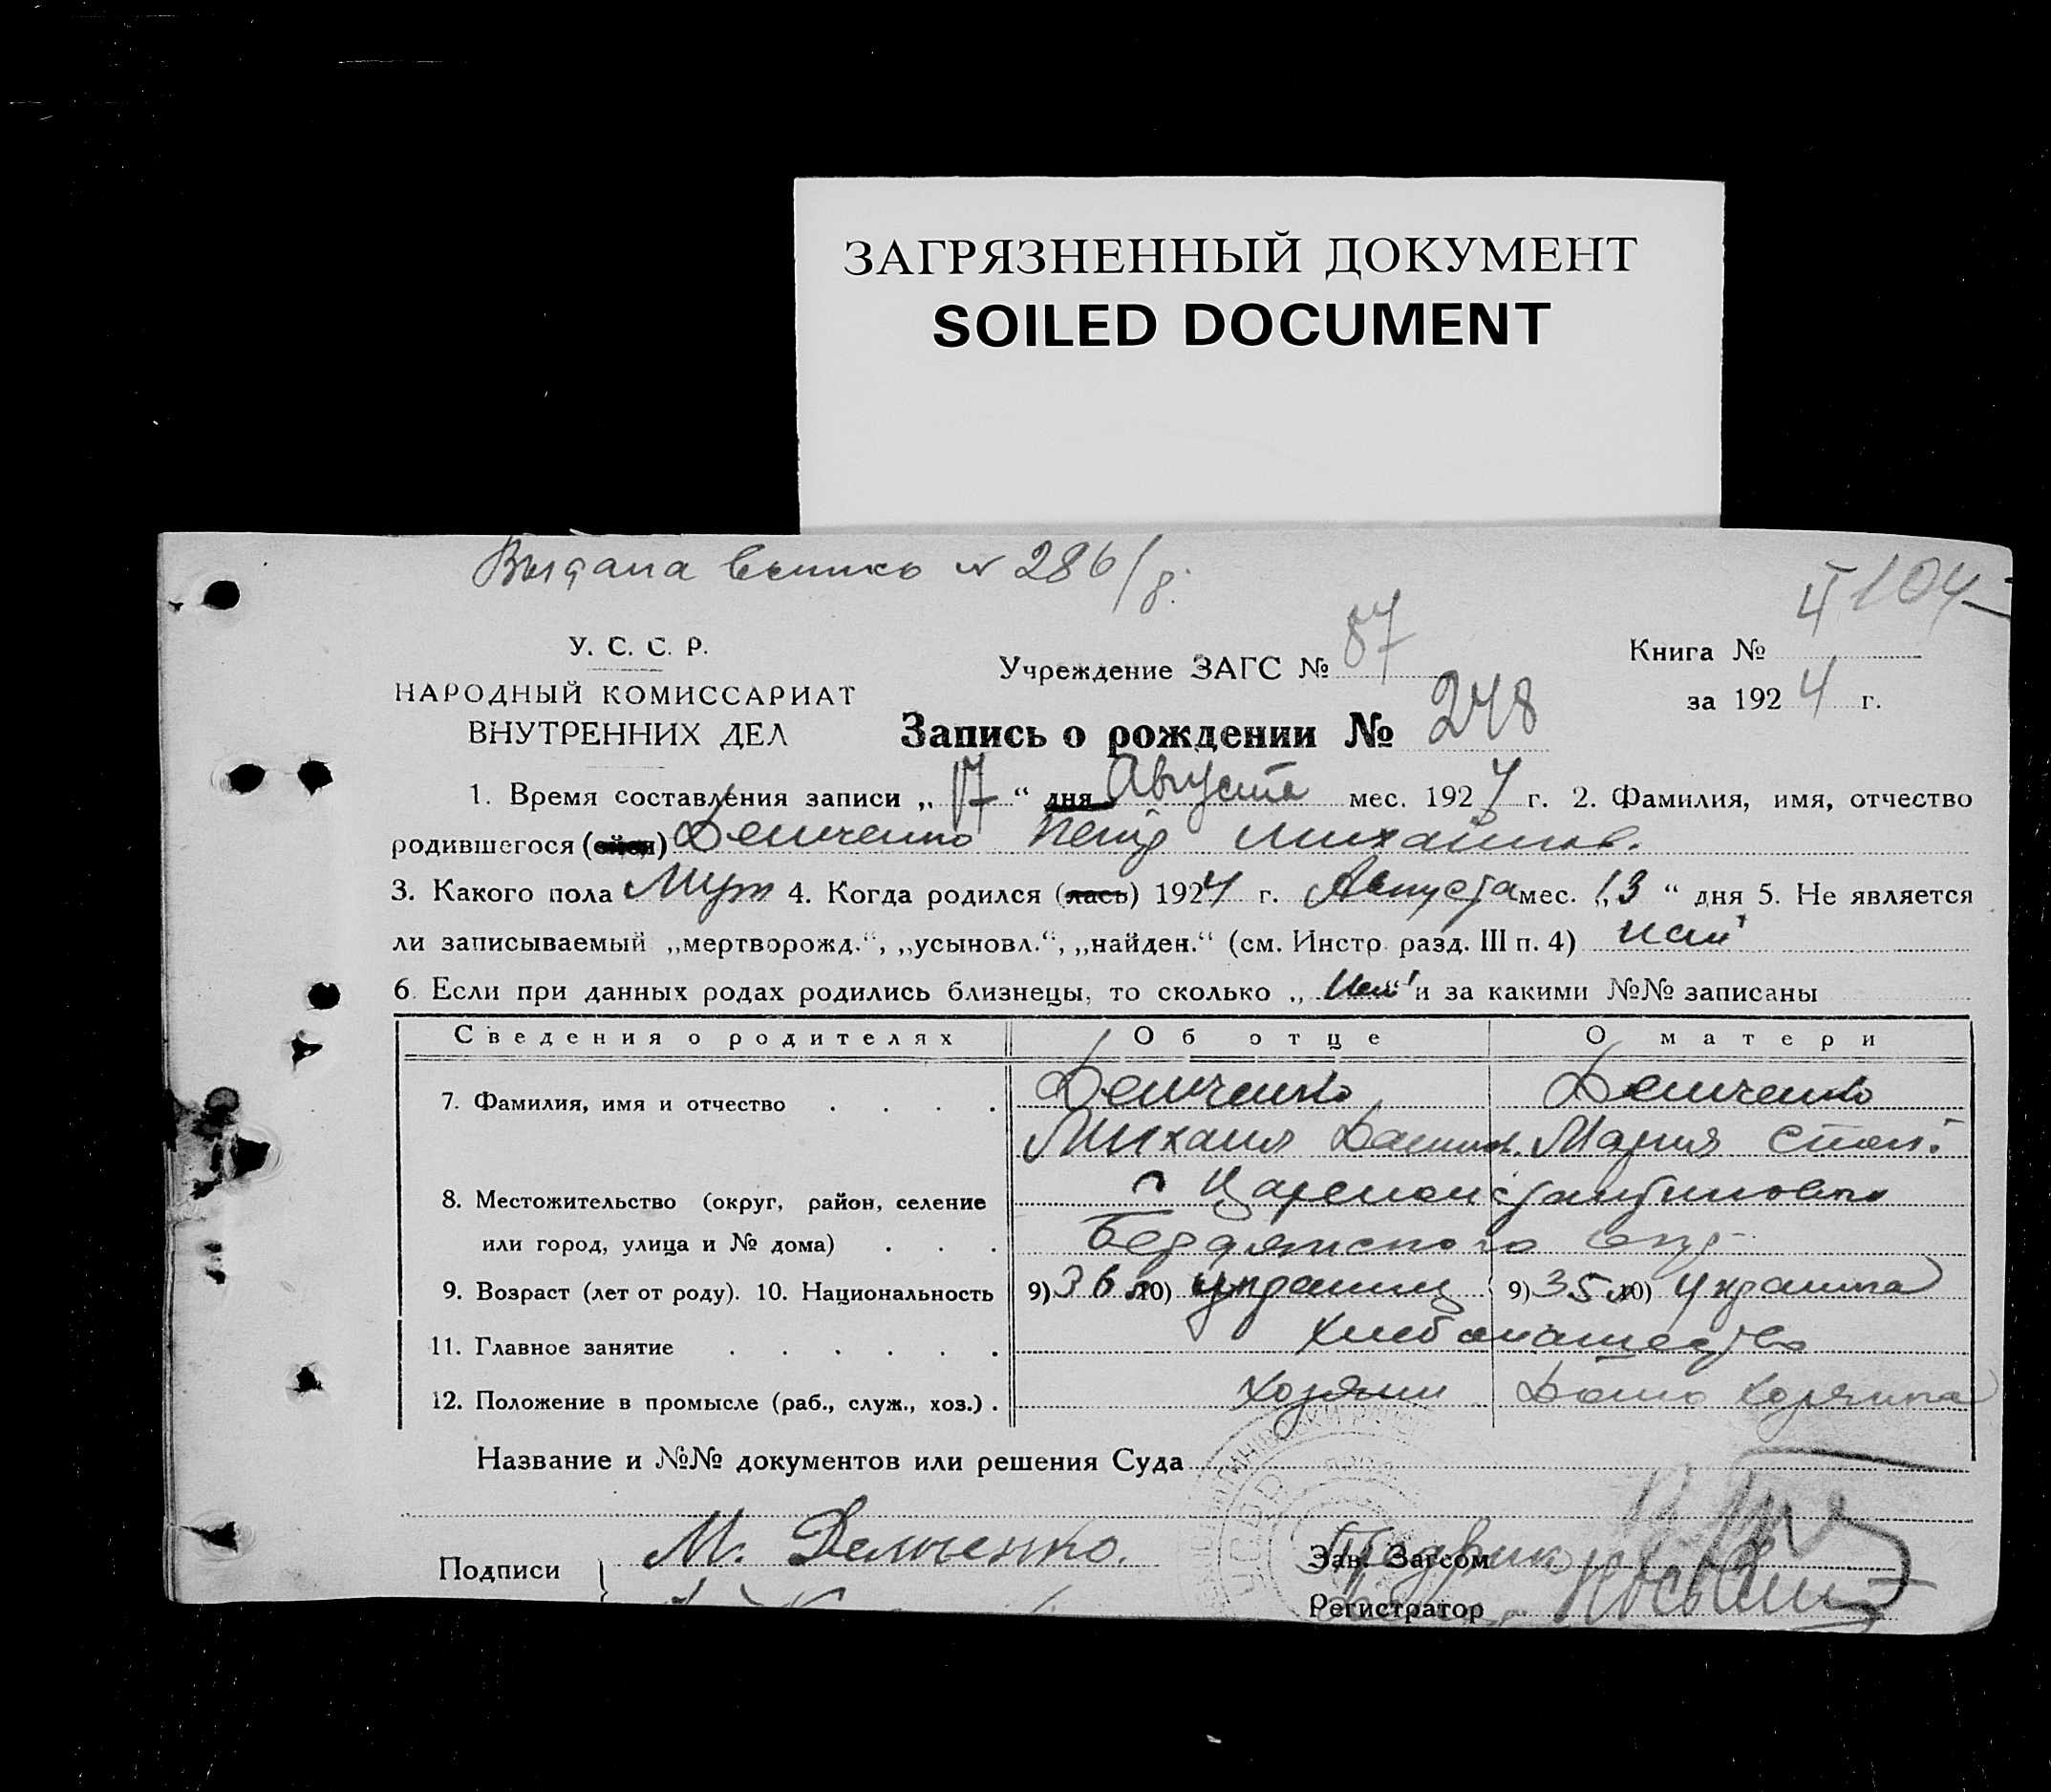 ЗАГРЯЗНЕННЫЙ ДОКУМЕНТ
SOILED DOCUMENT
Выдана № 286/
104
У. С. С. Р.
НАРОДНЫЙ КОМИССАРИАТ
ВНУТРЕННИХ ДЕЛ
Учреждение ЗАГС № 87
Книга №
за 1924 г.
Запись о рождении № 248
1. Время составления записи „17“ дня Августа мес. 1924 г. 2. Фамилия, имя, отчество
родившегося (ейся) Демченко Петр Михайлов.
3. Какого пола Муж 4. Когда родился (лась) 1924 г. Августа мес. „13“ дня 5. Не является
ли записываемый „мертворожд.“, „усыновл.“, „найден.“ (см. Инстр. разд. III п. 4) нет
6. Если при данных родах родились близнецы, то сколько „нет“ и за какими №№ записаны
Сведения о родителях Об отце О матери
7. Фамилия, имя и отчество Демченко Демченко
Михаил Данилов. Мария Степ.
8. Местожительство (округ, район, селение с Цареконстантиновка
или город, улица и № дома) Бердянского окр.
9. Возраст (лет от роду). 10. Национальность 9) 36 л 10) украинец 9) 35 л 10) украинка
11. Главное занятие хлебопашество
12. Положение в промысле (раб., служ., хоз.) хозяин Домо хозяйка
Название и №№ документов или решения Суда
Подписи М. Демченко.
Зав. Загсом
Регистратор